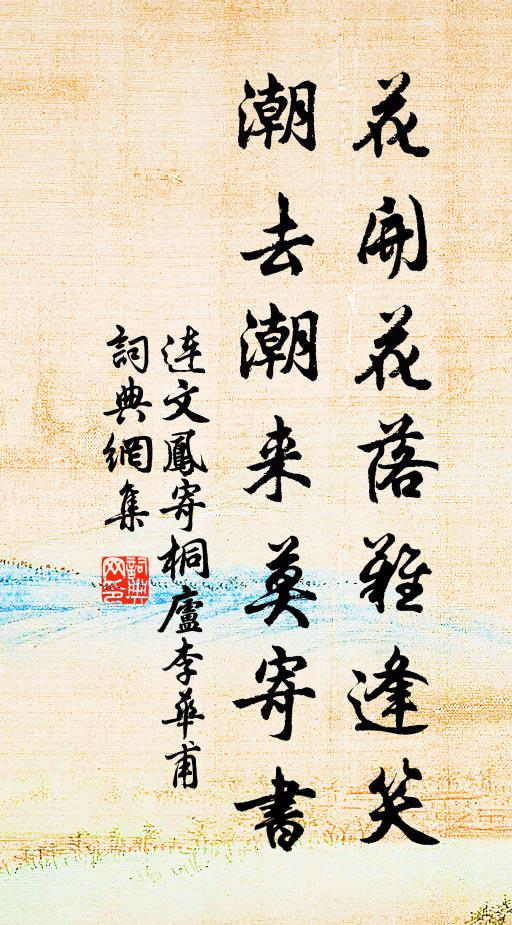 花開花落難逢笑
潮去潮来莫寄書
连文鳳寄桐廬李華甫
詞典網集
詞典
网